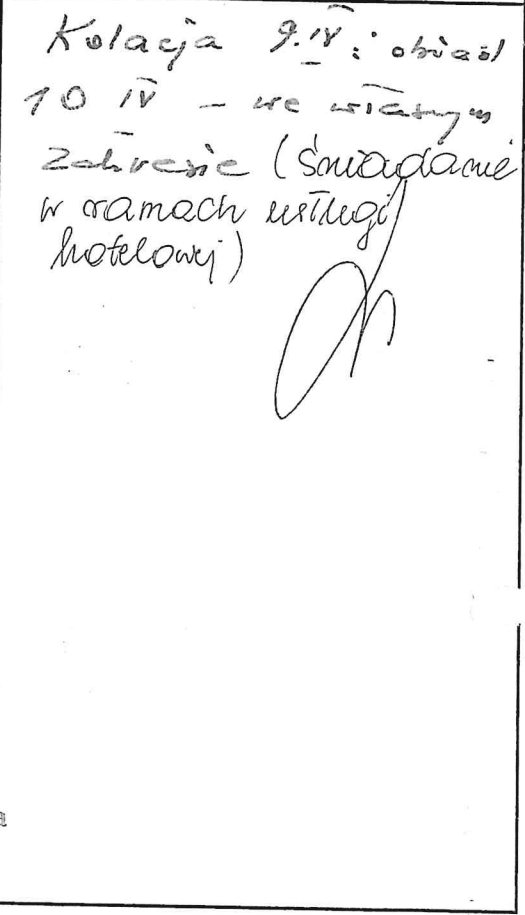 Kolacja 9.IV i obiad
10 IV – we własnym
zakresie (śniadanie
w ramach usługi
hotelowej)